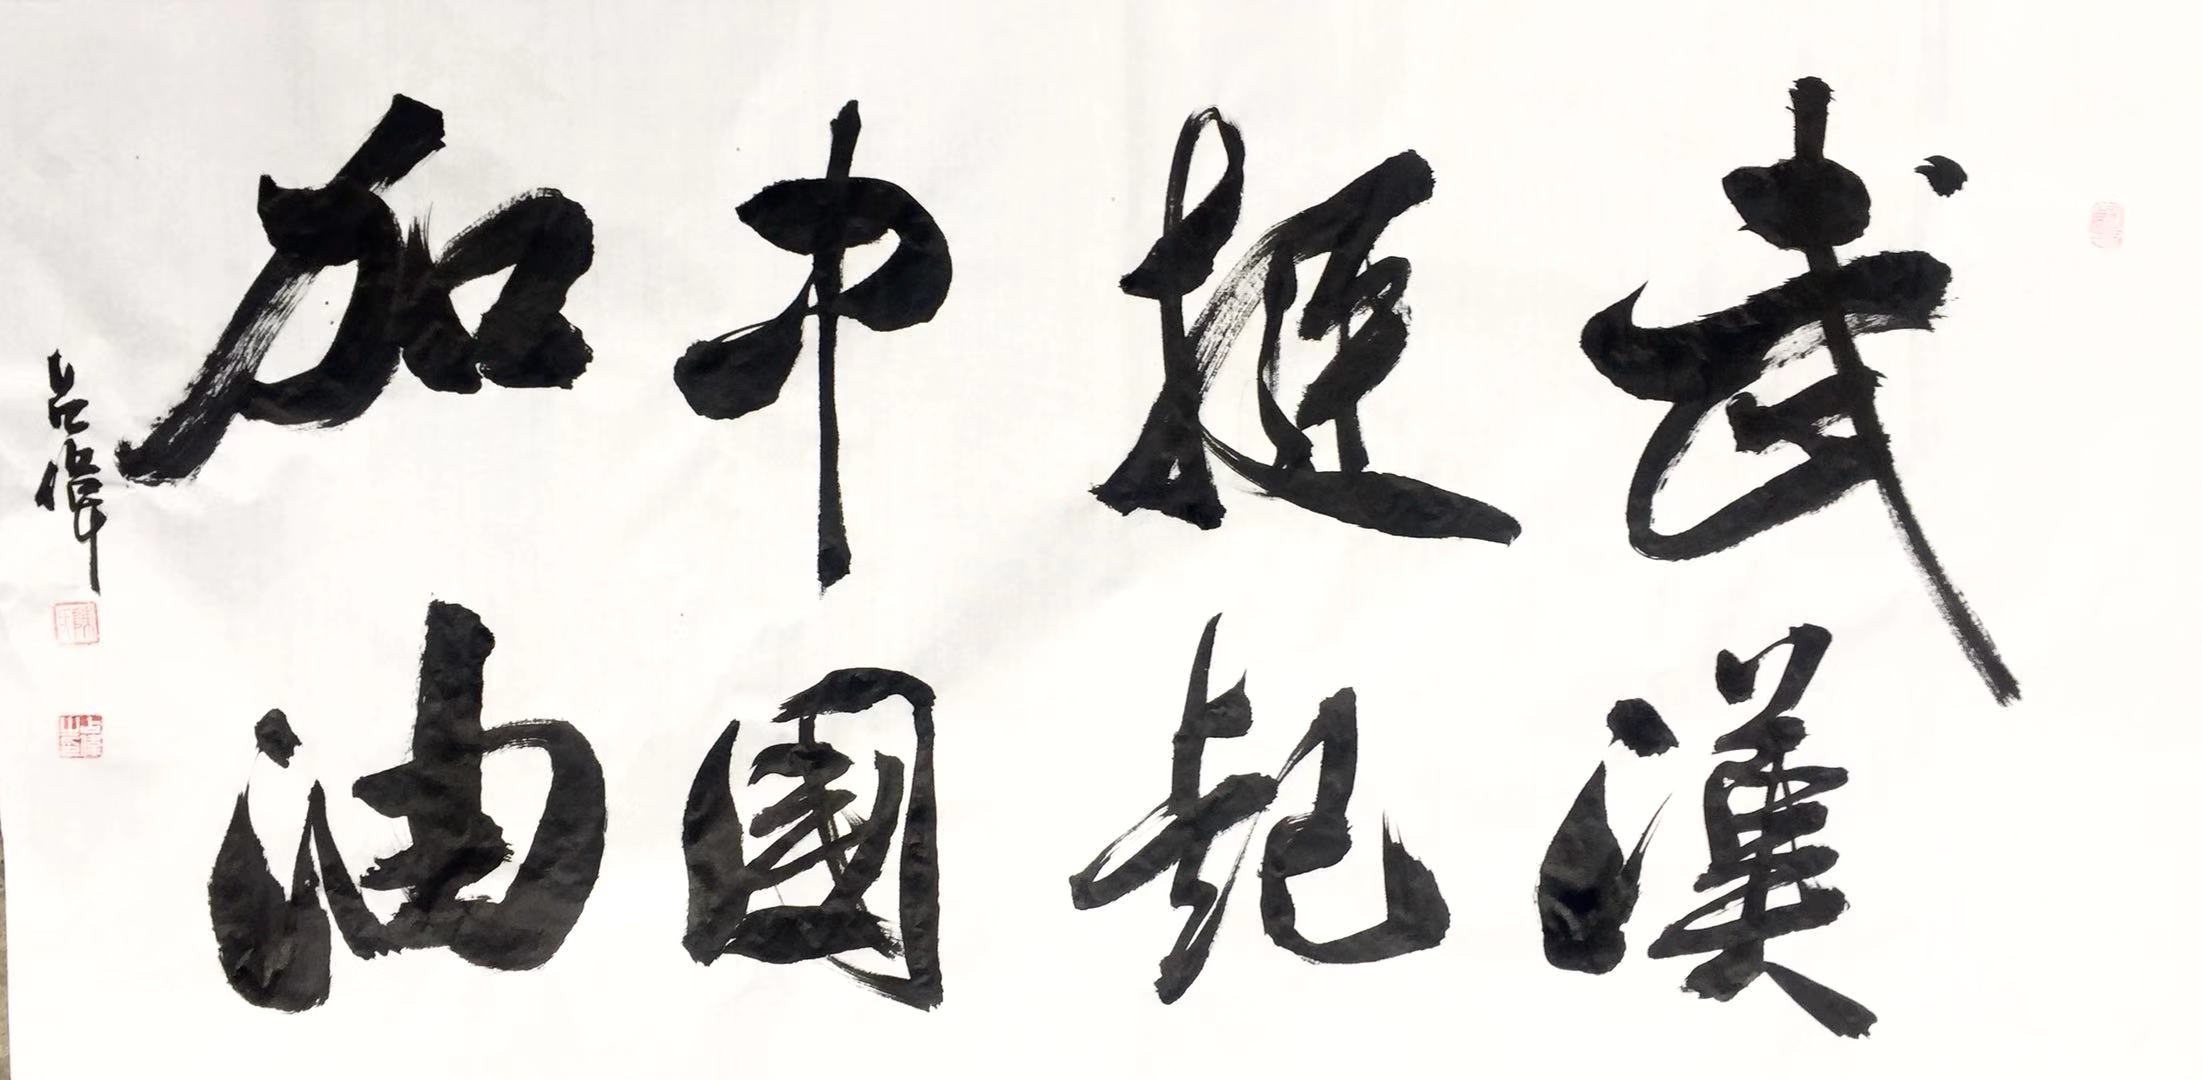 武漢
挺起
中國
加油
占偉